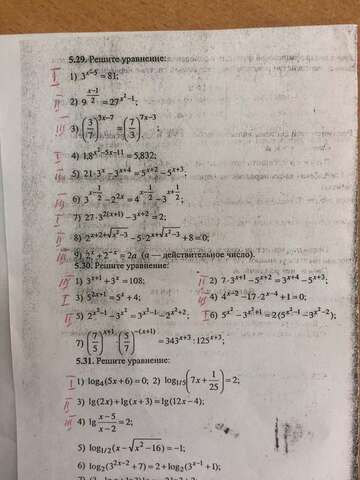 5.29. Решите уравнение:
I 1) 3^{x−5} = 81;
II 2) 9^{\frac{x−1}{2}} = 27^{x²−1};
III 3) (3/7)^{3x−7} = (7/3)^{7x−3};
I 4) 1,8^{x²−5x−11} = 5,832;
5) 21·3^x − 3^{x+4} = 5^{x+2} − 5^{x+3};
6) 3^{x−\frac{1}{2}} − 2^{2x} = 4^{x−\frac{1}{2}} − 3^{x+\frac{1}{2}};
I 7) 27·3^{2(x+1)} − 3^{x+2} = 2;
II 8) 2^{x+2+√(x²−3)} − 5·2^{x+√(x²−3)} + 8 = 0;
9) 2^x + 2^{−x} = 2a (a — действительное число).
5.30. Решите уравнение:
1) 3^{x+1} + 3^x = 108; II 2) 7·3^{x+1} − 5^{x+2} = 3^{x+4} − 5^{x+3};
I 3) 5^{2x+1} = 5^x + 4; 4) 4^{x−2} − 17·2^{x−4} + 1 = 0;
5) 2^{x²−1} − 3^{x²} = 3^{x²−1} − 2^{x²+2}; I 6) 5^{x²} − 3^{x²+1} = 2(5^{x²−1} − 3^{x²−2});
7) (7/5)^{x+1} · (5/7)^{−(x+1)} = 343^{x+3} · 125^{x+3};
5.31. Решите уравнение:
I 1) log₄(5x + 6) = 0; 2) log_{1/5}(7x + 1/25) = 2;
II 3) lg(2x) + lg(x + 3) = lg(12x − 4);
III 4) lg \frac{x−5}{x−2} = 2;
5) log_{1/2}(x − √(x² − 16)) = −1;
6) log₂(3^{2x−2} + 7) = 2 + log₂(3^{x−1} + 1);